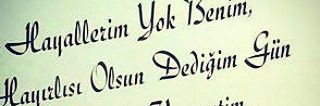 Hayallerim Yok Benim,
Hayırlısı Olsun Dediğim Gün